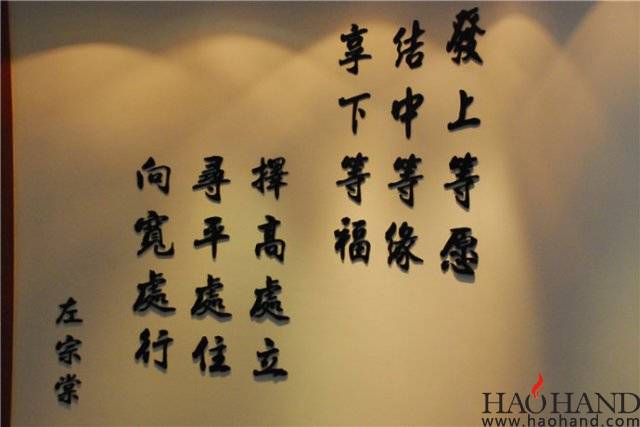 發上等愿
结中等缘
享下等福
擇高處立
尋平處住
向寬處行
左宗棠
HAOHAND
www.haohand.com